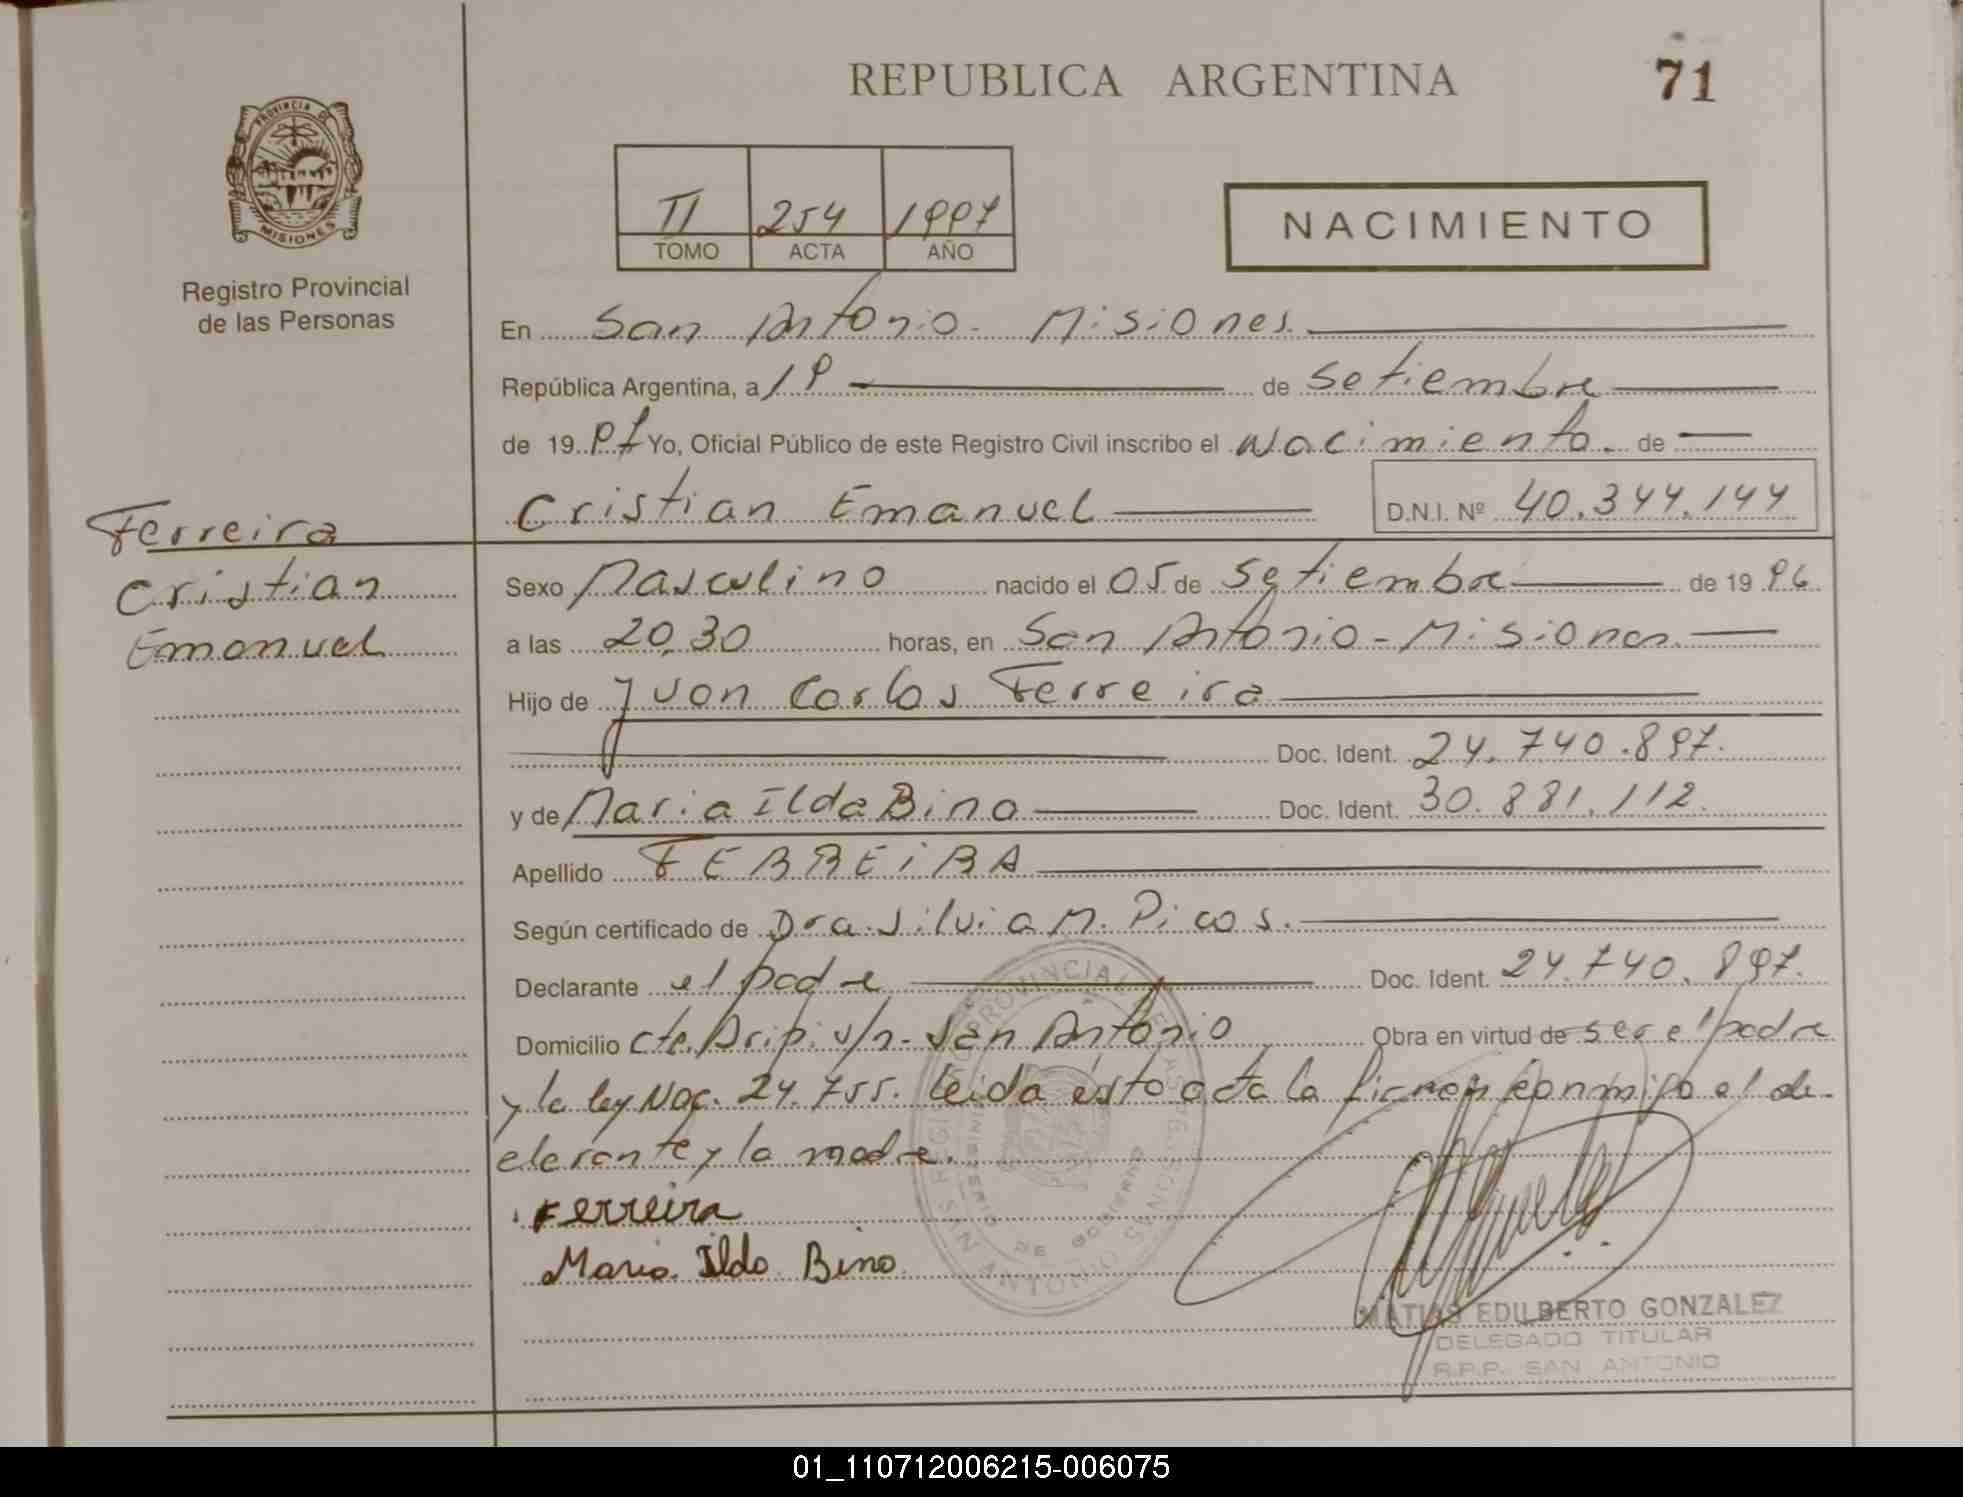 REPUBLICA ARGENTINA
71
PROVINCIA DE
MISIONES
Registro Provincial
de las Personas
II 254 1997
TOMO ACTA AÑO
NACIMIENTO
En San Antonio - Misiones.
República Argentina, a 19 de Setiembre
de 1997 Yo, Oficial Público de este Registro Civil inscribo el Nacimiento de
Cristian Emanuel D.N.I. Nº 40.344.144
Ferreira
Cristian
Emanuel
Sexo Masculino nacido el 05 de Setiembre de 1996
a las 20,30 horas, en San Antonio - Misiones.
Hijo de Juan Carlos Ferreira
Doc. Ident. 24.740.897.
y de Maria Ilda Bino Doc. Ident. 30.881.112.
Apellido FERREIRA
Según certificado de Dra. Silvia M. Picos.
Declarante el padre Doc. Ident. 24.740.897.
Domicilio cte. Arip. s/n - San Antonio Obra en virtud de ser el padre
y la ley Nac. 24.755. leida ésta acta la firman conmigo el de-
clarante y la madre.
Ferreira
Maria Ilda Bino
REGISTRO PROVINCIAL DE LAS PERSONAS
MINISTERIO DE GOBIERNO
SAN ANTONIO
MATIAS EDILBERTO GONZALEZ
DELEGADO TITULAR
R.P.P. SAN ANTONIO
01_110712006215-006075